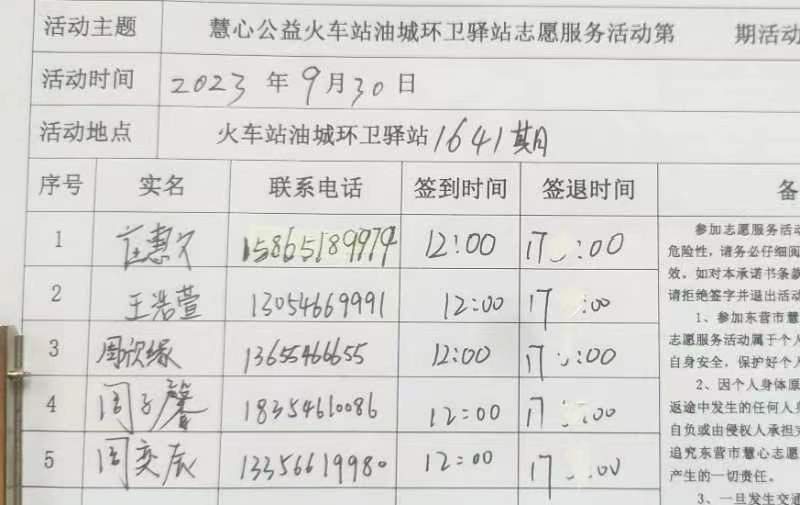 活动主题 慧心公益火车站油城环卫驿站志愿服务活动第 期活动
活动时间 2023 年 9 月 30 日
活动地点 火车站油城环卫驿站1641期
序号 实名 联系电话 签到时间 签退时间 备
1 15865189974 12:00 17:00
2 王浩萱 13054669991 12:00 17:00
3 周欣缘 13655466655 12:00 17:00
4 周子馨 18354610086 12:00 17:00
5 周奕辰 13356619980 12:00 17:00
参加志愿服务活动
危险性，请务必仔细阅
效。如对本承诺书条款
请拒绝签字并退出活动
1、参加东营市慧
志愿服务活动属于个人
自身安全，保护好个人
2、因个人身体原
返途中发生的任何人身
自负或由侵权人承担
追究东营市慧心志愿
产生的一切责任。
3、一旦发生交通